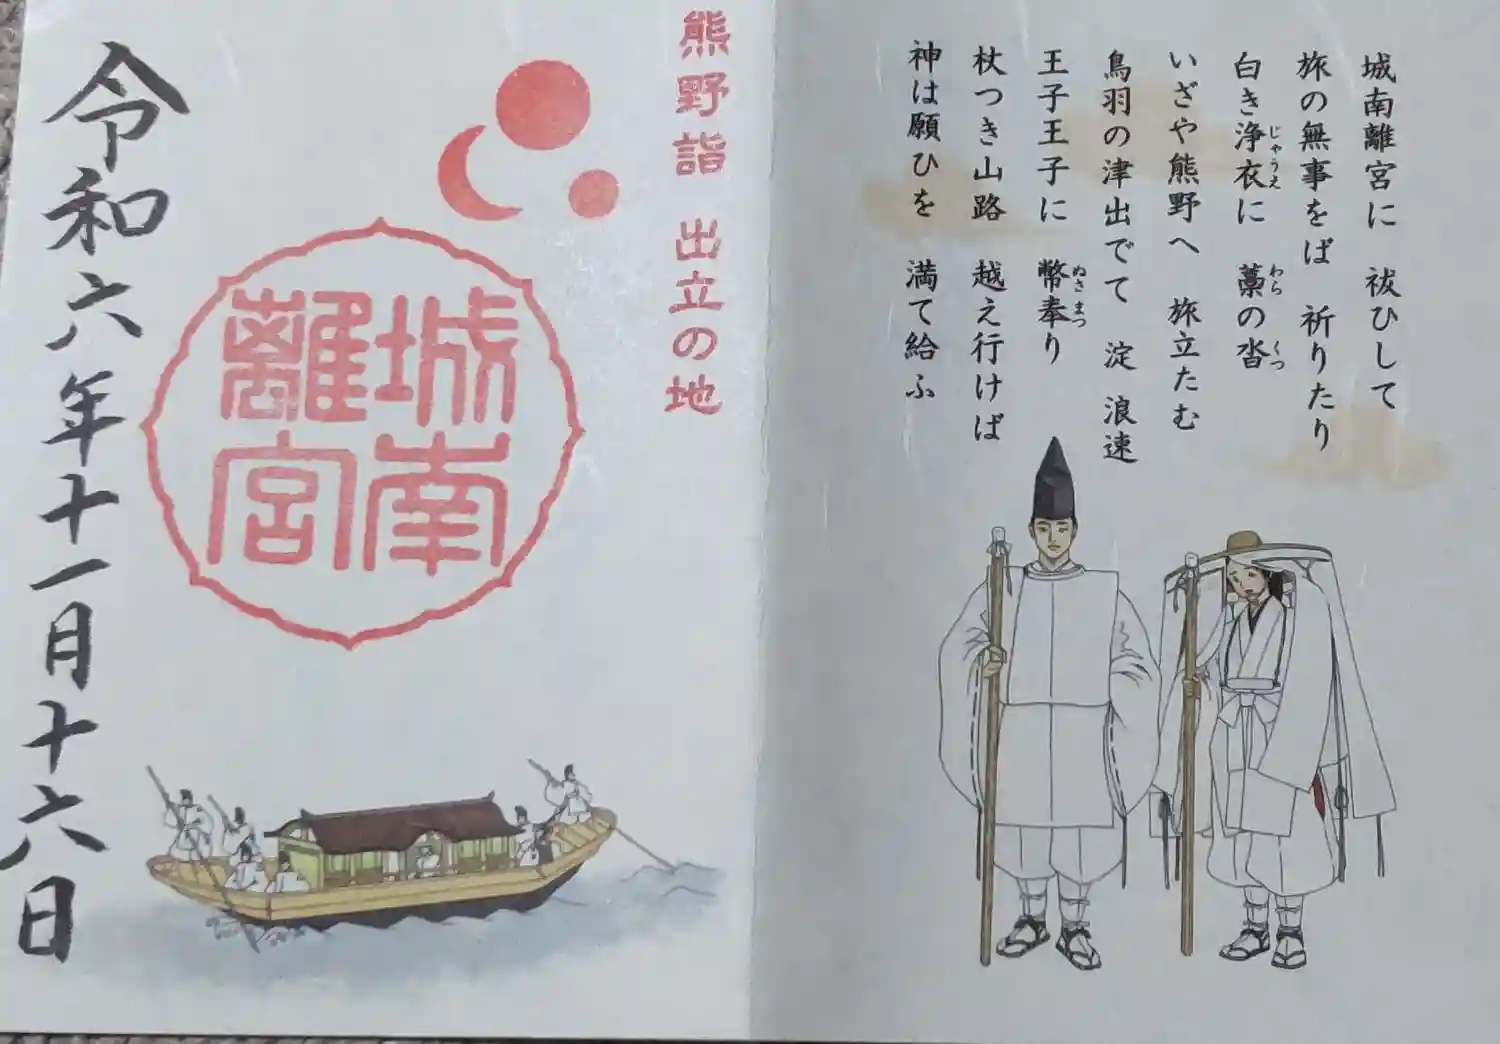 城南離宮に　祓ひして
旅の無事をば　祈りたり
白き浄衣に　藁の沓
じゃうえ
わら
くつ
いざや熊野へ　旅立たむ
鳥羽の津出でて　淀　浪速
王子王子に　幣奉り
ぬさまつ
杖つき山路　越え行けば
神は願ひを　満て給ふ
熊野詣　出立の地
城南
離宮
令和六年十一月十六日